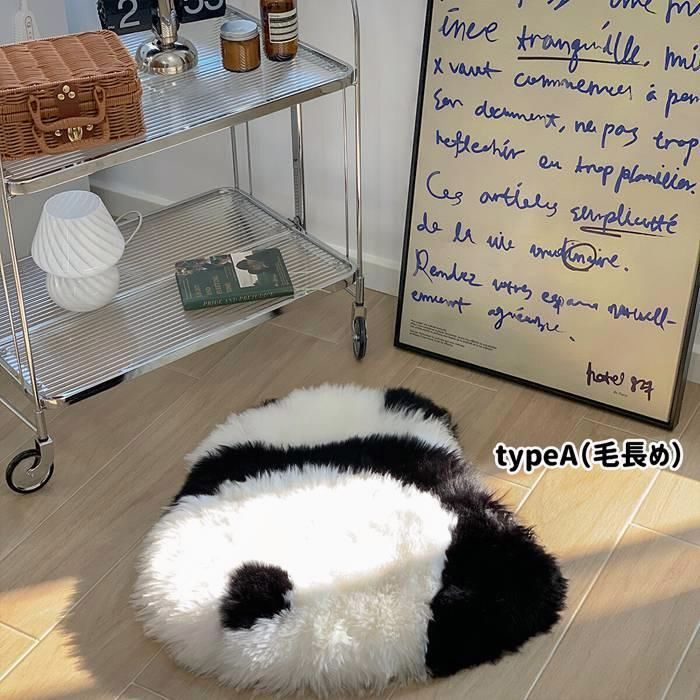 2 53
ince tranquille, mi
x vaut commencer à pen
Son document, ne pas trop
reflechir ou trop planifier
Ces articles simplicité
de la vie
Rendez votres espace naturell-
ement agréable.
hotel 827
PRIDE AND PREJUDICE
typeA(毛長め)